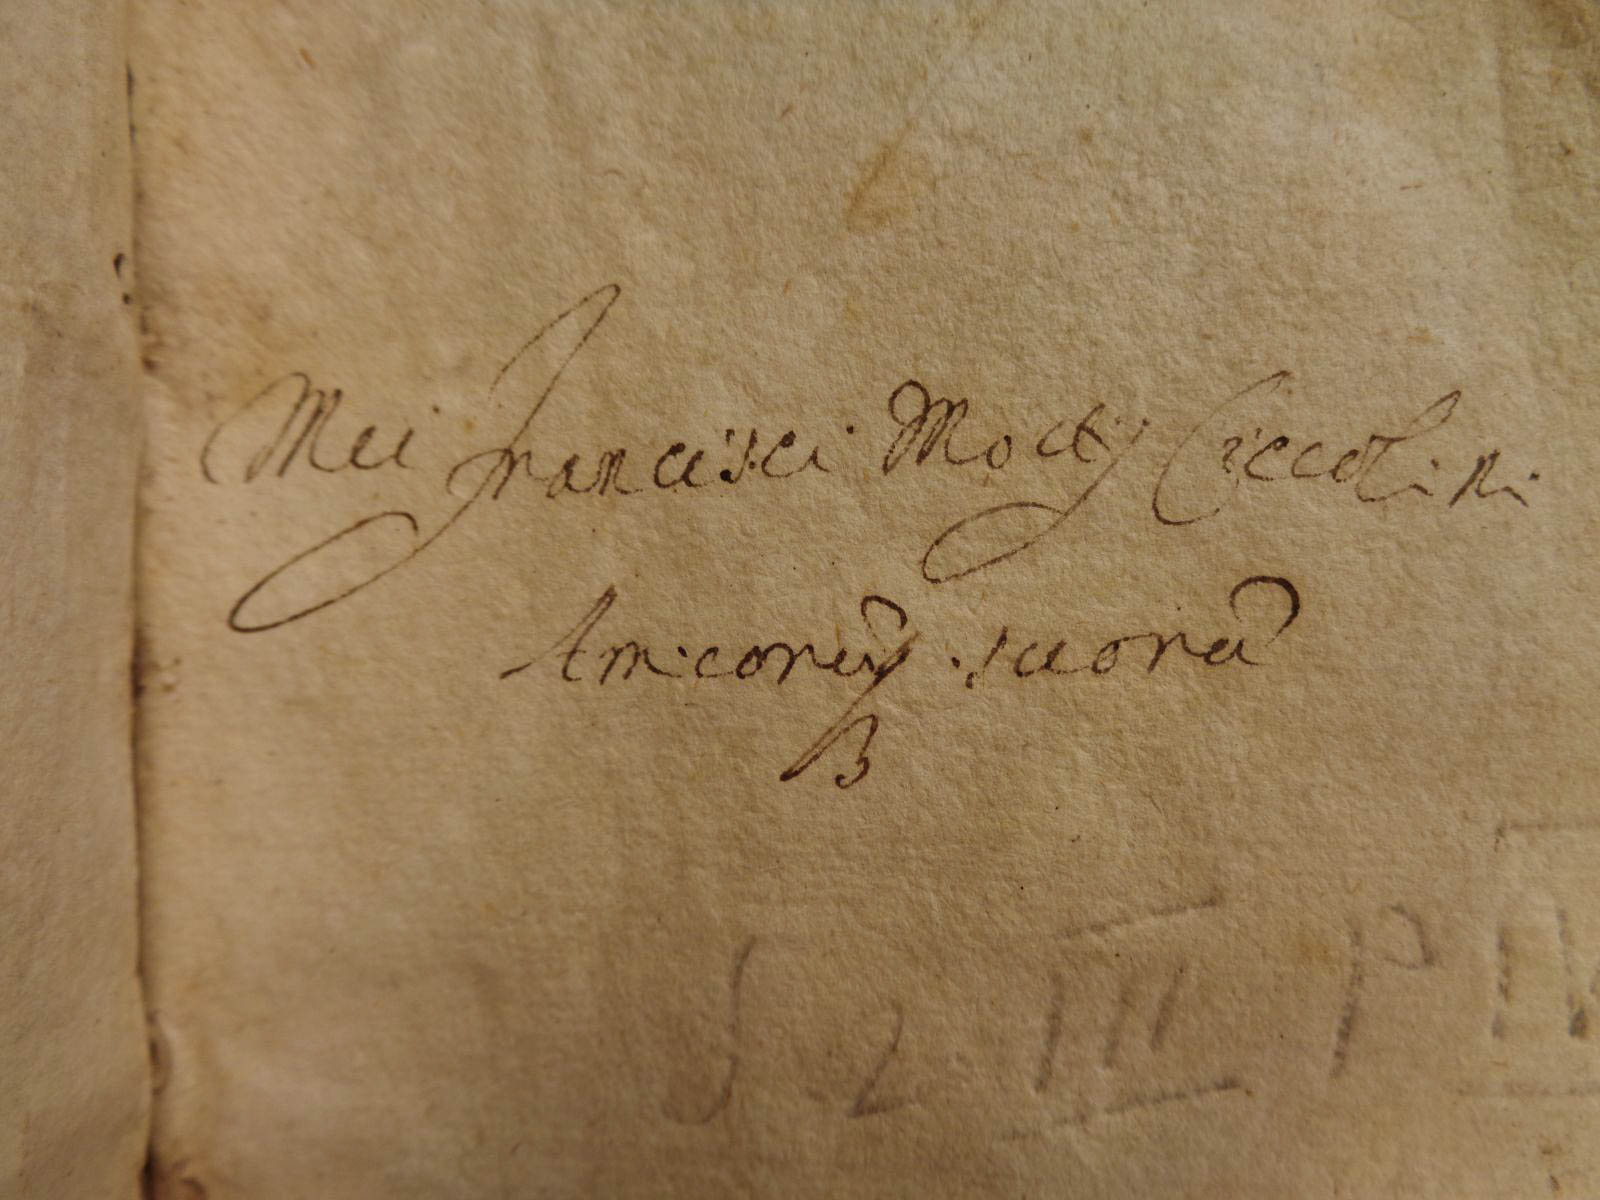 Mei Francisci Moctij Ciccolini
Amicorũq suorũ
S 2 III P IV